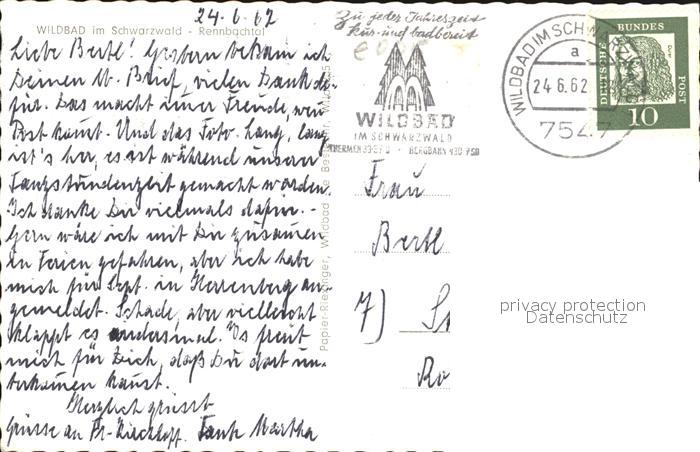 24.6.62
WILDBAD im Schwarzwald - Rennbachtal
Liebe Bertl! Gestern bekam ich
Deinen lb. Brief, vielen Dank da-
für. Das macht immer Freude, wenn
Post kommt. Und das Foto. Lang, lang
ist's her, es ist während unserer
Tanzstundenzeit gemacht worden.
Ich danke Dir vielmals dafür. -
Gern wäre ich mit Dir zusammen
in Ferien gefahren, aber ich habe
mich für Sept. in Herrenberg an-
gemeldet. Schade, aber vielleicht
klappt es andersmal. Es freut
mich für Dich, daß Du dort un-
terkommen kannst.
Herzlich grüsst
Grüsse an Fr. Kirchhoff. Tante Martha
Papier-Riexinger, Wildbad
Zu jeder Jahreszeit
kur- und badbereit
WILDBAD
IM SCHWARZWALD
THERMEN 33-37° · BERGBAHN 430-750
WILDBAD IM SCHWARZWALD
a
24.6.62
7547
DEUTSCHE BUNDESPOST
10
Frau
Bertl
7) St
Ro
privacy protection
Datenschutz